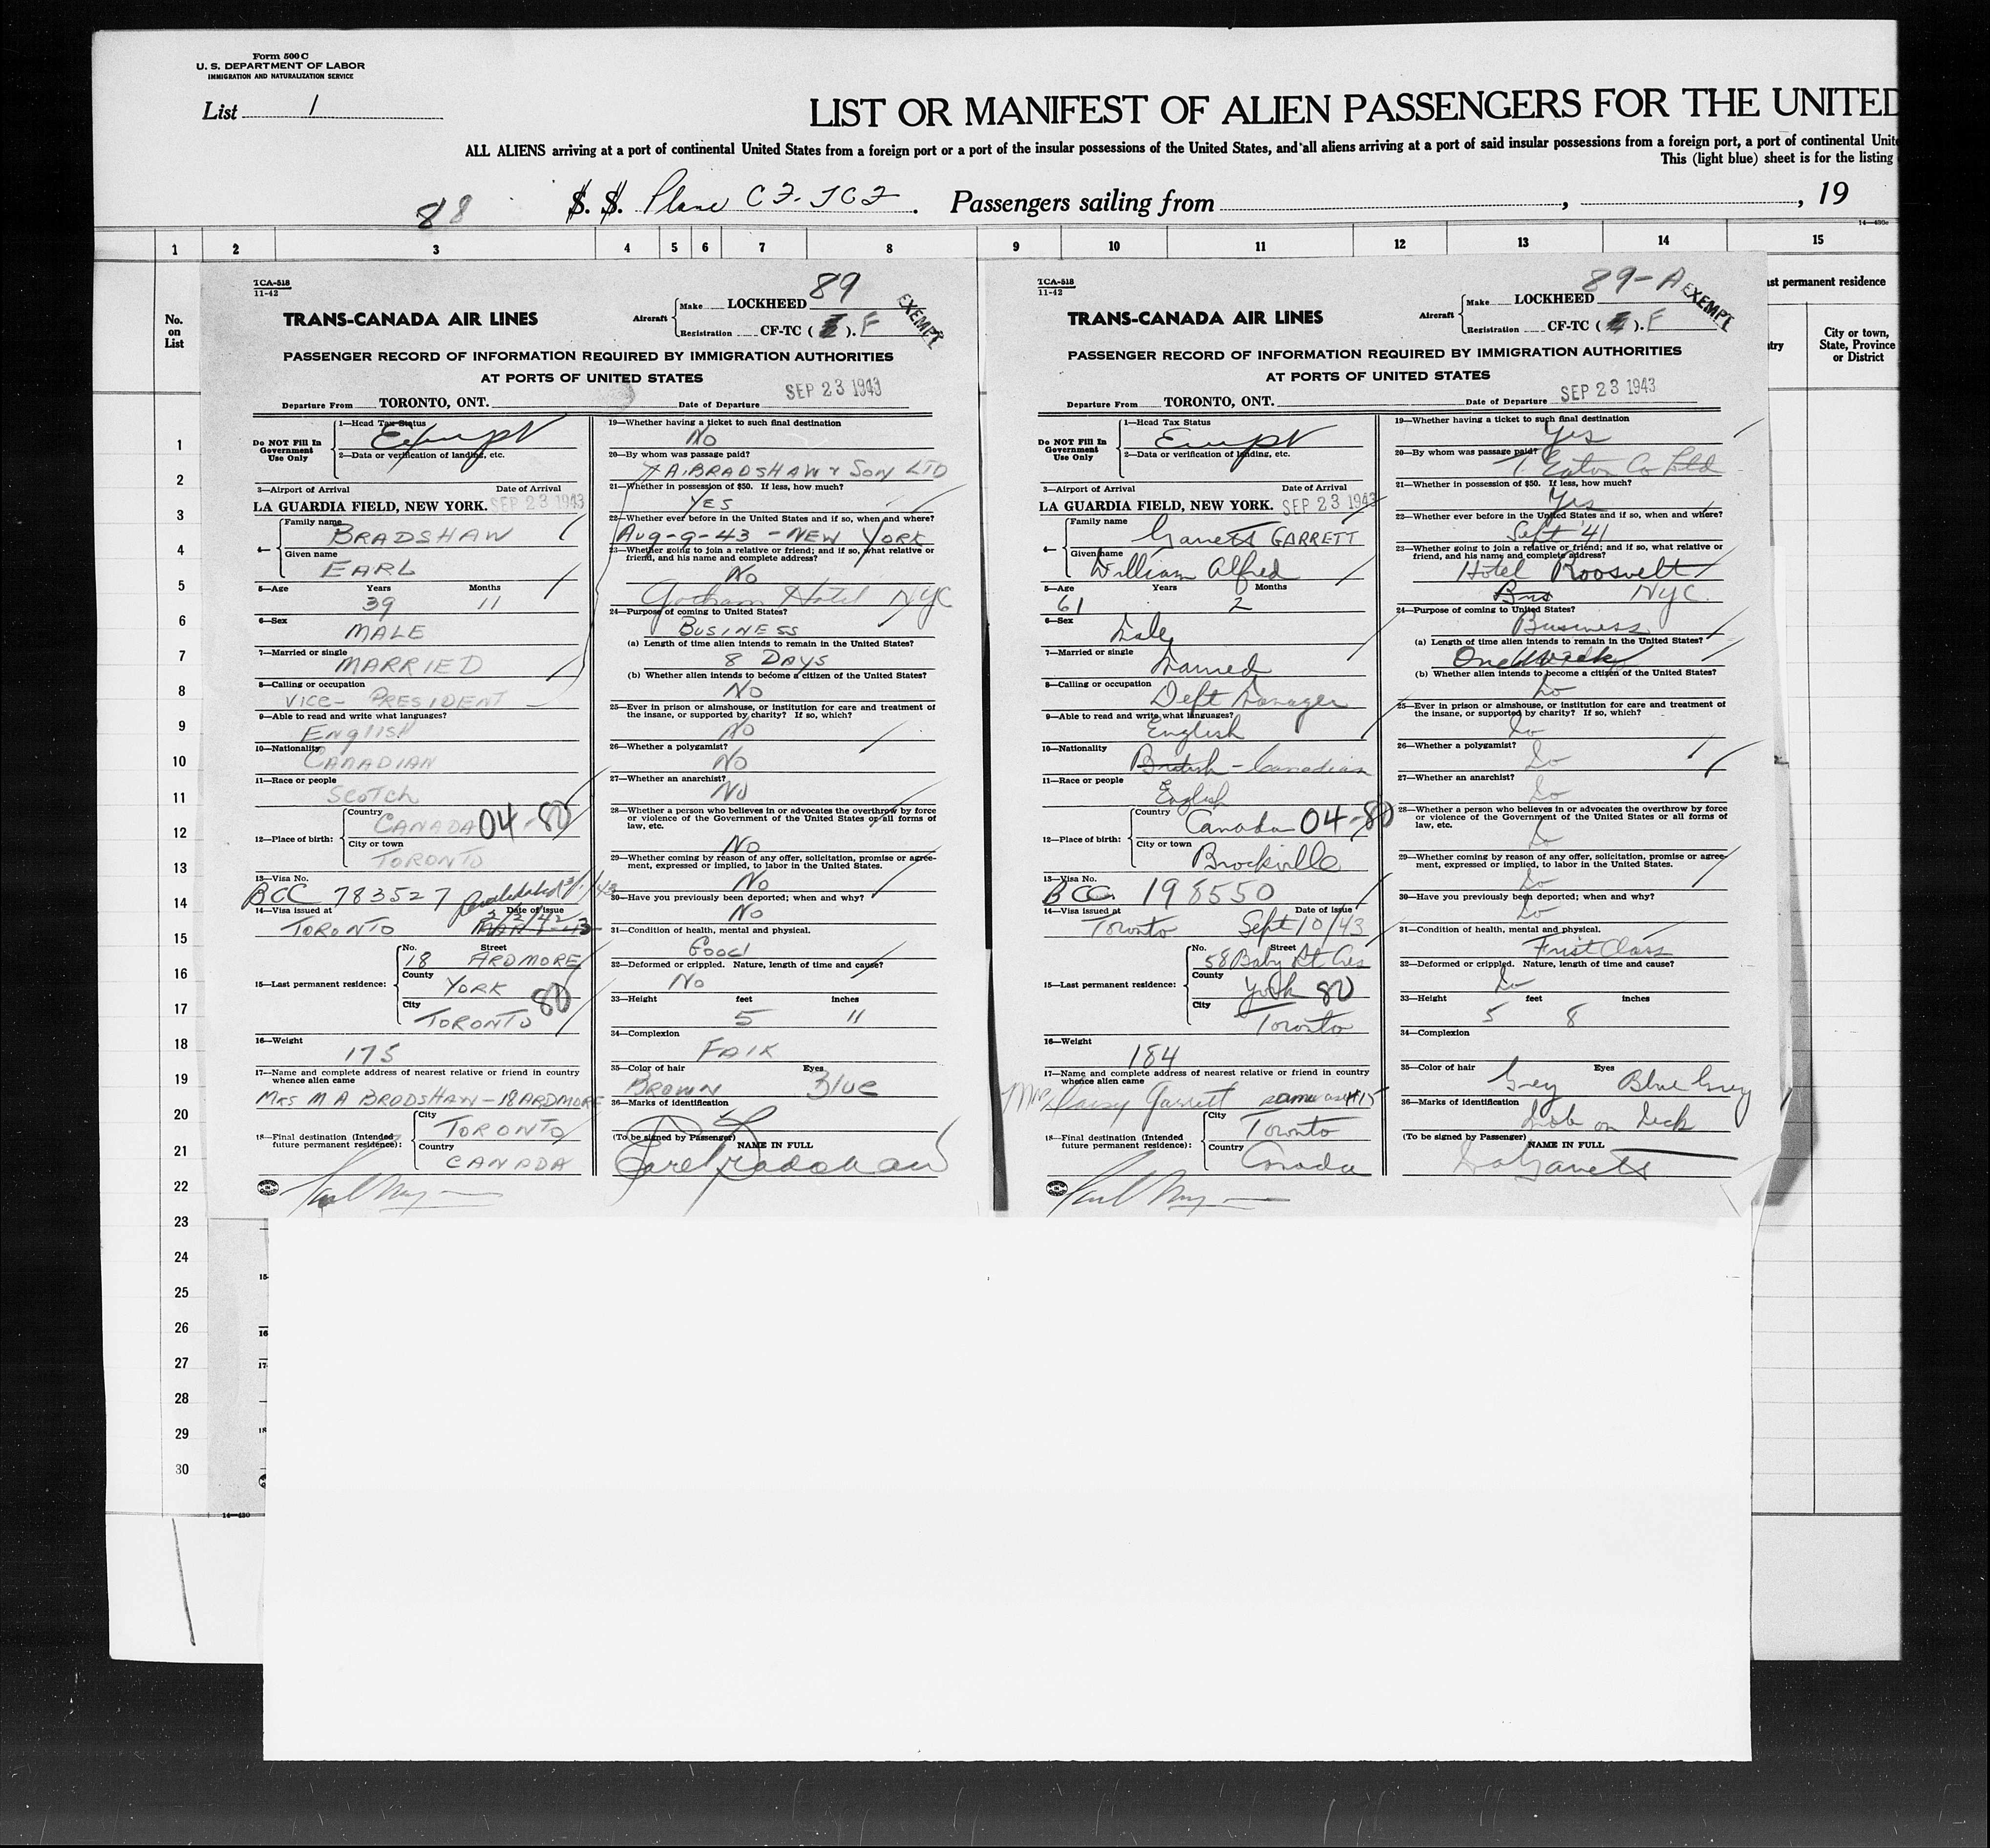 Form 500 C
U. S. DEPARTMENT OF LABOR
IMMIGRATION AND NATURALIZATION SERVICE
List 1
LIST OR MANIFEST OF ALIEN PASSENGERS FOR THE UNITED
ALL ALIENS arriving at a port of continental United States from a foreign port or a port of the insular possessions of the United States, and all aliens arriving at a port of said insular possessions from a foreign port, a port of continental Unite
This (light blue) sheet is for the listing
88 S. S. Plane CF-TCF. Passengers sailing from , , 19
14—430c
1 2 3 4 5 6 7 8 9 10 11 12 13 14 15
No. on List
ast permanent residence
try
City or town, State, Province or District
1
2
3
4
5
6
7
8
9
10
11
12
13
14
15
16
17
18
19
20
21
22
23
24
25
26
27
28
29
30
14—430
TCA-518
11-42
89
EXEMPT
TRANS-CANADA AIR LINES
Aircraft Make LOCKHEED
Registration CF-TC ( ). F
PASSENGER RECORD OF INFORMATION REQUIRED BY IMMIGRATION AUTHORITIES
AT PORTS OF UNITED STATES
Departure From TORONTO, ONT. Date of Departure SEP 23 1943
Do NOT Fill In Government Use Only
1—Head Tax Status
Exempt
2—Data or verification of landing, etc.
3—Airport of Arrival Date of Arrival
LA GUARDIA FIELD, NEW YORK. SEP 23 1943
4— Family name
BRADSHAW
Given name
EARL
5—Age Years Months
39 11
6—Sex
MALE
7—Married or single
MARRIED
8—Calling or occupation
VICE-PRESIDENT
9—Able to read and write what languages?
ENGLISH
10—Nationality
CANADIAN
11—Race or people
SCOTCH
12—Place of birth: Country
CANADA 04-80
City or town
TORONTO
13—Visa No.
BCC 783527
14—Visa issued at Date of issue
TORONTO
15—Last permanent residence: No. Street
18 ARDMORE
County
YORK 80
City
TORONTO
16—Weight
175
17—Name and complete address of nearest relative or friend in country whence alien came
MRS M A BRADSHAW - 18 ARDMORE
18—Final destination (Intended future permanent residence): City
TORONTO
Country
CANADA
19—Whether having a ticket to such final destination
NO
20—By whom was passage paid?
A. BRADSHAW & SON LTD
21—Whether in possession of $50. If less, how much?
YES
22—Whether ever before in the United States and if so, when and where?
AUG-9-43 - NEW YORK
23—Whether going to join a relative or friend; and if so, what relative or friend, and his name and complete address?
NO
Gotham Hotel NYC
24—Purpose of coming to United States?
BUSINESS
(a) Length of time alien intends to remain in the United States?
8 DAYS
(b) Whether alien intends to become a citizen of the United States?
NO
25—Ever in prison or almshouse, or institution for care and treatment of the insane, or supported by charity? If so, which?
NO
26—Whether a polygamist?
NO
27—Whether an anarchist?
NO
28—Whether a person who believes in or advocates the overthrow by force or violence of the Government of the United States or all forms of law, etc.
NO
29—Whether coming by reason of any offer, solicitation, promise or agreement, expressed or implied, to labor in the United States.
NO
30—Have you previously been deported; when and why?
NO
31—Condition of health, mental and physical.
GOOD
32—Deformed or crippled. Nature, length of time and cause?
NO
33—Height feet inches
5 11
34—Complexion
FAIR
35—Color of hair Eyes
BROWN BLUE
36—Marks of identification
(To be signed by Passenger) NAME IN FULL
Earl Bradshaw
TCA-518
11-42
89-A
EXEMPT
TRANS-CANADA AIR LINES
Aircraft Make LOCKHEED
Registration CF-TC ( ). F
PASSENGER RECORD OF INFORMATION REQUIRED BY IMMIGRATION AUTHORITIES
AT PORTS OF UNITED STATES
Departure From TORONTO, ONT. Date of Departure SEP 23 1943
Do NOT Fill In Government Use Only
1—Head Tax Status
Exempt
2—Data or verification of landing, etc.
3—Airport of Arrival Date of Arrival
LA GUARDIA FIELD, NEW YORK. SEP 23 1943
4— Family name
Garrett GARRETT
Given name
William Alfred
5—Age Years Months
61 2
6—Sex
Male
7—Married or single
Married
8—Calling or occupation
Dept Manager
9—Able to read and write what languages?
English
10—Nationality
British - Canadian
11—Race or people
English
12—Place of birth: Country
Canada 04-80
City or town
Brockville
13—Visa No.
BCC 198550
14—Visa issued at Date of issue
Toronto Sept 10/43
15—Last permanent residence: No. Street
58 Baby Pt Cres
County
York 80
City
Toronto
16—Weight
184
17—Name and complete address of nearest relative or friend in country whence alien came
Mrs Daisy Garrett same as #15
18—Final destination (Intended future permanent residence): City
Toronto
Country
Canada
19—Whether having a ticket to such final destination
Yes
20—By whom was passage paid?
T. Eaton Co Ltd
21—Whether in possession of $50. If less, how much?
Yes
22—Whether ever before in the United States and if so, when and where?
Sept '41
23—Whether going to join a relative or friend; and if so, what relative or friend, and his name and complete address?
Hotel Roosvelt
NYC.
24—Purpose of coming to United States?
Business
(a) Length of time alien intends to remain in the United States?
One Week
(b) Whether alien intends to become a citizen of the United States?
No
25—Ever in prison or almshouse, or institution for care and treatment of the insane, or supported by charity? If so, which?
No
26—Whether a polygamist?
No
27—Whether an anarchist?
No
28—Whether a person who believes in or advocates the overthrow by force or violence of the Government of the United States or all forms of law, etc.
No
29—Whether coming by reason of any offer, solicitation, promise or agreement, expressed or implied, to labor in the United States.
No
30—Have you previously been deported; when and why?
No
31—Condition of health, mental and physical.
First Class
32—Deformed or crippled. Nature, length of time and cause?
No
33—Height feet inches
5 8
34—Complexion
35—Color of hair Eyes
Grey Blue Grey
36—Marks of identification
Mole on Neck
(To be signed by Passenger) NAME IN FULL
WA Garrett